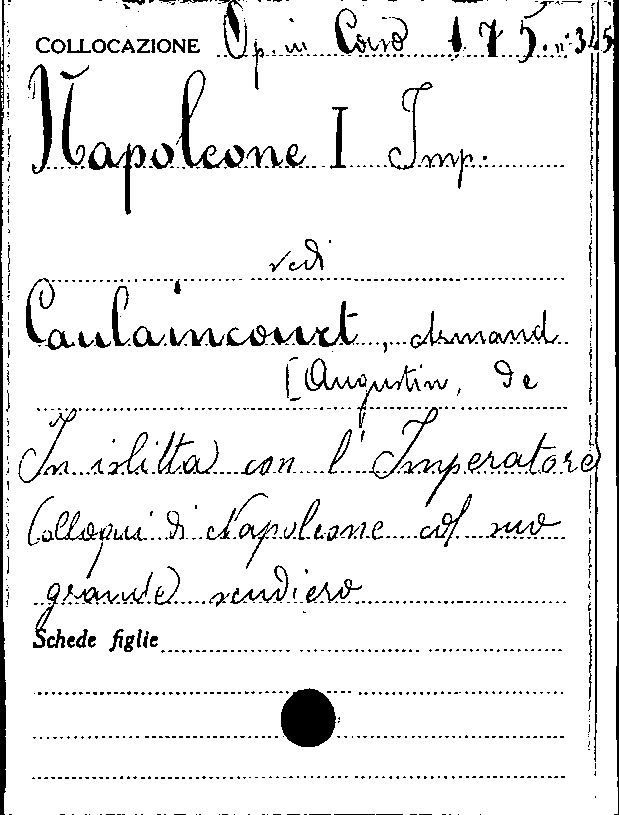 COLLOCAZIONE Op. in Corso 175. n. 345
Napoleone I Imp.
vedi
Caulaincourt, Armand
[Augustin, de
In islitta con l'Imperatore
Colloqui di Napoleone col suo
grande scudiero
Schede figlie